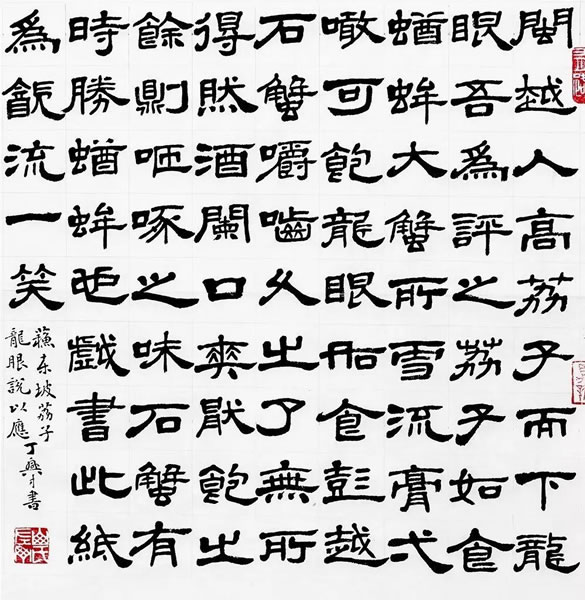 閩越人高荔子而下龍
眼吾為評之荔子如食
蝤蛑大蟹斫雪流膏弌
噉可飽龍眼船食彭越
石蟹嚼嚙久之了無所
得然酒闌口爽厭飽之
餘則咂啄之味石蟹有
時勝蝤蛑也戲書此紙
為飲流一笑
蘓東坡荔子
龍眼說以應丁書